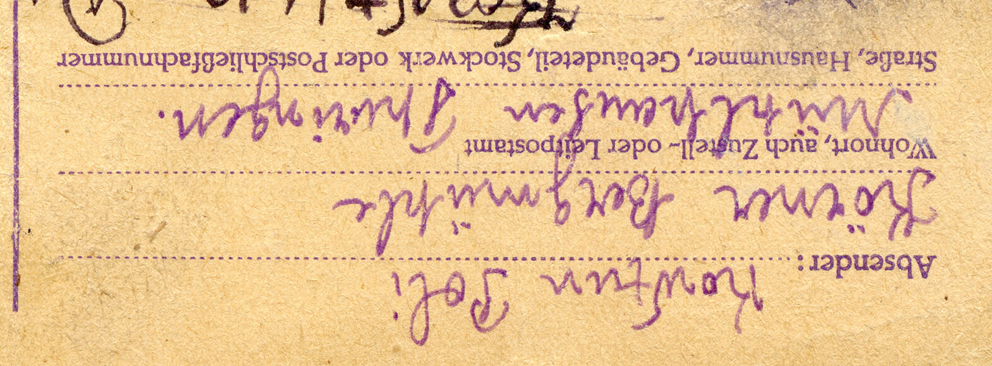 Absender: Kowtun Poli
Körner Bergmühle
Wohnort, auch Zustell- oder Leitpostamt
Mühlhausen Thüringen.
Straße, Hausnummer, Gebäudeteil, Stockwerk oder Postschließfachnummer